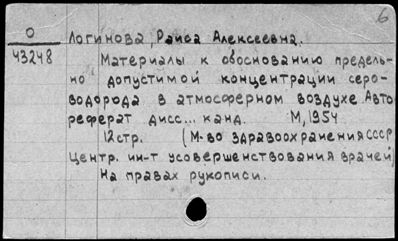 6
О Логинова, Раиса Алексеевна.
43248 Материалы к обоснованию предель-
но допустимой концентрации серо-
водорода в атмосферном воздухе. Авто
реферат дисс... канд. М, 1954
12 стр. (М-во здравоохранения СССР
Центр. ин-т усовершенствования врачей)
На правах рукописи.